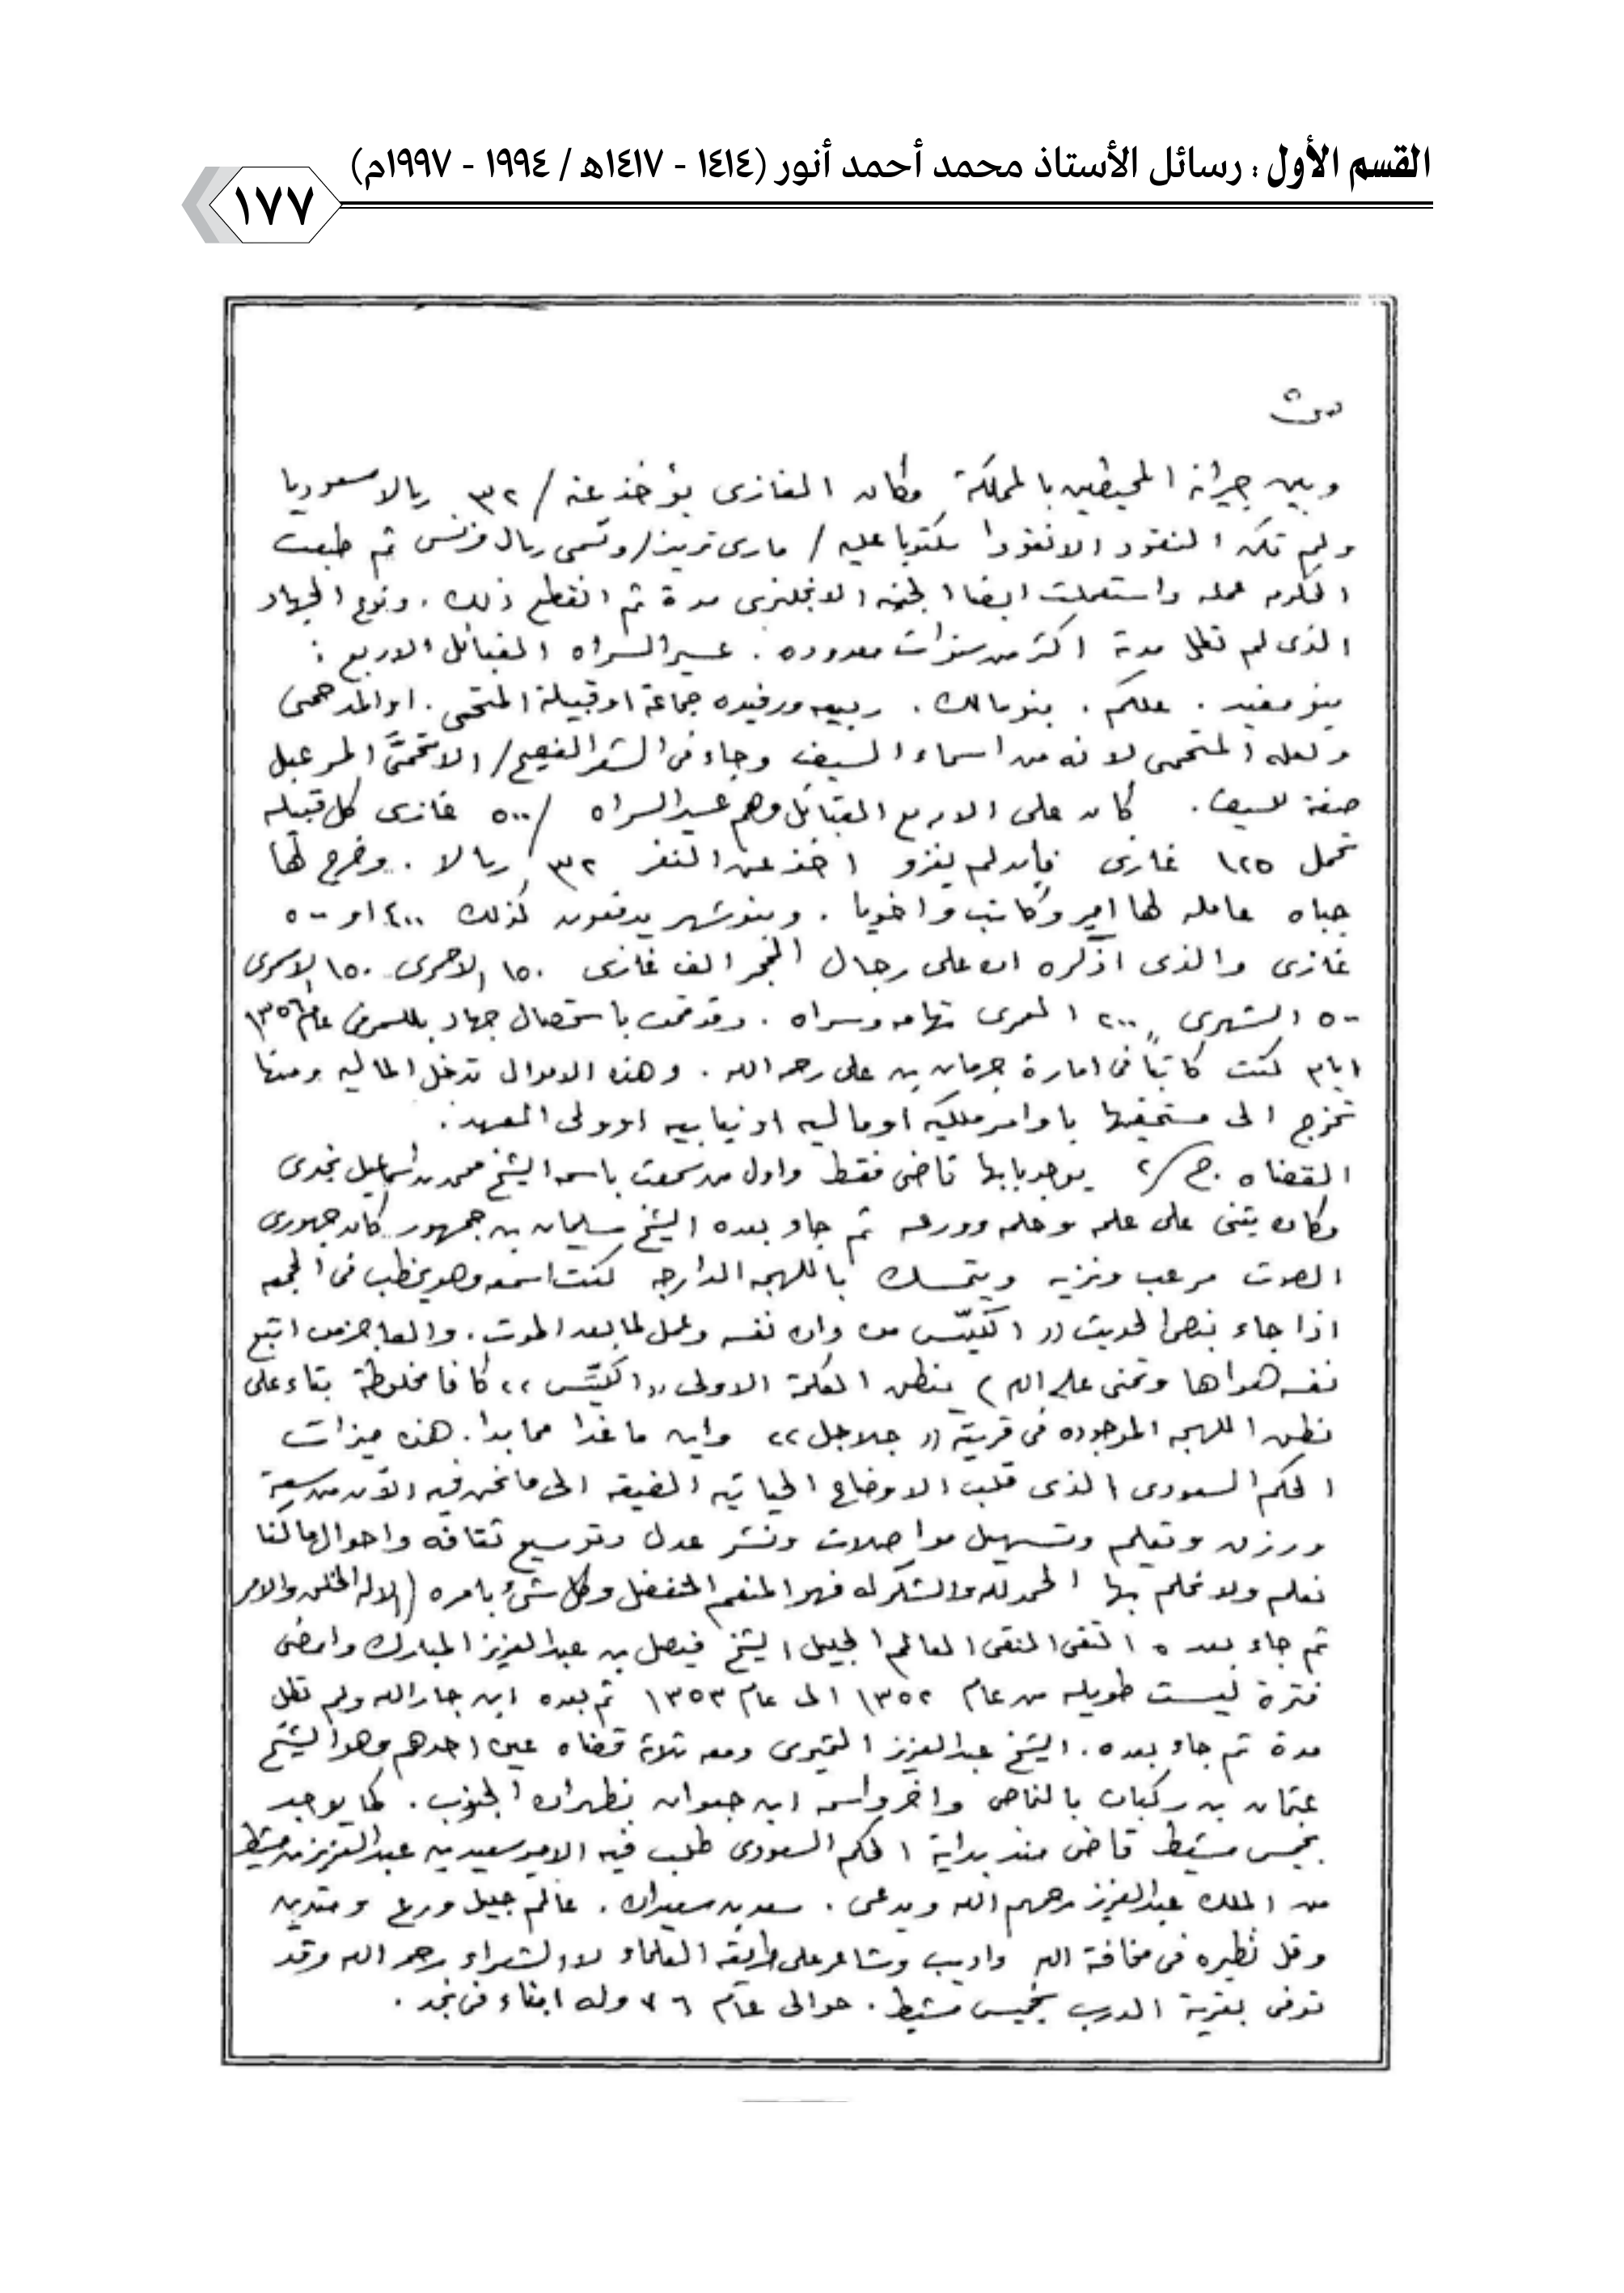 القسم الأول : رسائل الأستاذ محمد أحمد أنور (١٤١٤ - ١٤١٧هـ / ١٩٩٤ - ١٩٩٧م)
١٧٧
وبين جيرانه المحيطين بالمملكة وكان الغازى يؤخذ عنه / ٣٢ ريالا سعوديا
ولم تكن النقود الا نقودا مكتوبا عليه / مارى تريز / وتسمى ريال فرنس ثم طبعت
الحكومه عمله واستعملت ايضا الجنيه الانجليزى مدة ثم انقطع ذلك . ونوع الجهاد
الذى لم تطل مدته اكثر من سنوات معدوده . عسير السراه القبائل الاربع :
بنو مغيد . علكم . بنو مالك . ربيعه ورفيده جماعة او قبيلة المتحمى . او المدحمى
ولعله المتحمى لانه من اسماء السيف وجاء فى الشعر الفصيح / الاتحمىَّ المرعبل
صفة للسيف . كان على الاربع القبائل وهم عسير السراه / ٥٠٠ غازى كل قبيله
تحمل ١٢٥ غازى فإن لم يغزو اخذ عن النفر ٣٢ ريالا . وخرج لها
جباه عامله لها امير وكاتب واخويا . وبنو شهر يدفعون كذلك ٤٠٠ او ٥٠٠
غازى والذى اذكره ان على رجال الحجر الف غازى ١٥٠ الاحمرى ١٥٠ الاسمرى
٥٠٠ الشهرى ٢٠٠ العمرى تهامه وسراه . وقد قمت باستحصال جهاد بللسمر فى عام ١٣٥٦
ايام كنت كاتباً فى امارة جرمان بن على رحمه الله . وهذه الاموال تدخل الماليه ومنها
تخرج الى مستحقيها باوامر ملكيه او ماليه او نيابيه او ولى العهد .
القضاه . ج / ٢ يوجد بابها قاضى فقط واول من سمعت باسمه الشيخ محمد بن اسماعيل نجدى
وكان يثنى على علمه وحلمه وورعه ثم جاء بعده الشيخ سليمان بن جمهور كان جهورى
الصوت مرعب ونزيه ويتمسك باللهجه الدارجه كنت اسمعه وهو يخطب فى الجمعه
اذا جاء بنص الحديث (( الكيّس من دان نفسه وعمل لما بعد الموت . والعاجز من اتبع
نفسه هواها وتمنى على الله ) ينطق الكلمة الاولى (( الكيّس )) كافا مخلوطة بتاء على
نطق اللهجه الموجوده فى قرية (( جلاجل )) واين ما غدا مما بدا . هذه ميزات
الحكم السعودى الذى قلب الاوضاع الحياتيه الضيقه الى ما نحن فيه الآن من سعة
ورزق وتعليم وتسهيل مواصلات ونشر عدل وتوسيع ثقافه واحوال ما كنا
نعلم ولا نحلم بها الحمد لله والشكر له فهو المنعم المتفضل وكل شئ بامره (الا له الخلق والامر
ثم جاء بعده التقى النقى العالم الجليل الشيخ فيصل بن عبدالعزيز المبارك وامضى
فترة ليست طويله من عام ١٣٥٢ الى عام ١٣٥٣ ثم بعده ابن جارالله ولم تطل
مدة ثم جاء بعده . الشيخ عبدالعزيز ومعه ثلاثة قضاه عين احدهم وهو الشيخ
عثمان بن ركبان بالنماص واخر واسمه ابن جعوان بظهران الجنوب . كما يوجد
بخميس مشيط قاضى منذ بداية الحكم السعودى طلب فيه الامير سعيد بن عبدالعزيز بن مشيط
من الملك عبدالعزيز رحمهم الله ويدعى . سعد بن سعيدان . عالم جليل ورع ومتدين
وقل نظيره فى مخافة الله واديب وشاعر على طريقة العلماء لا الشعراء رحمه الله وقد
توفى بقرية الدرب بخميس مشيط . حوالى عام ٧٦ وله ابناء فى نجد .